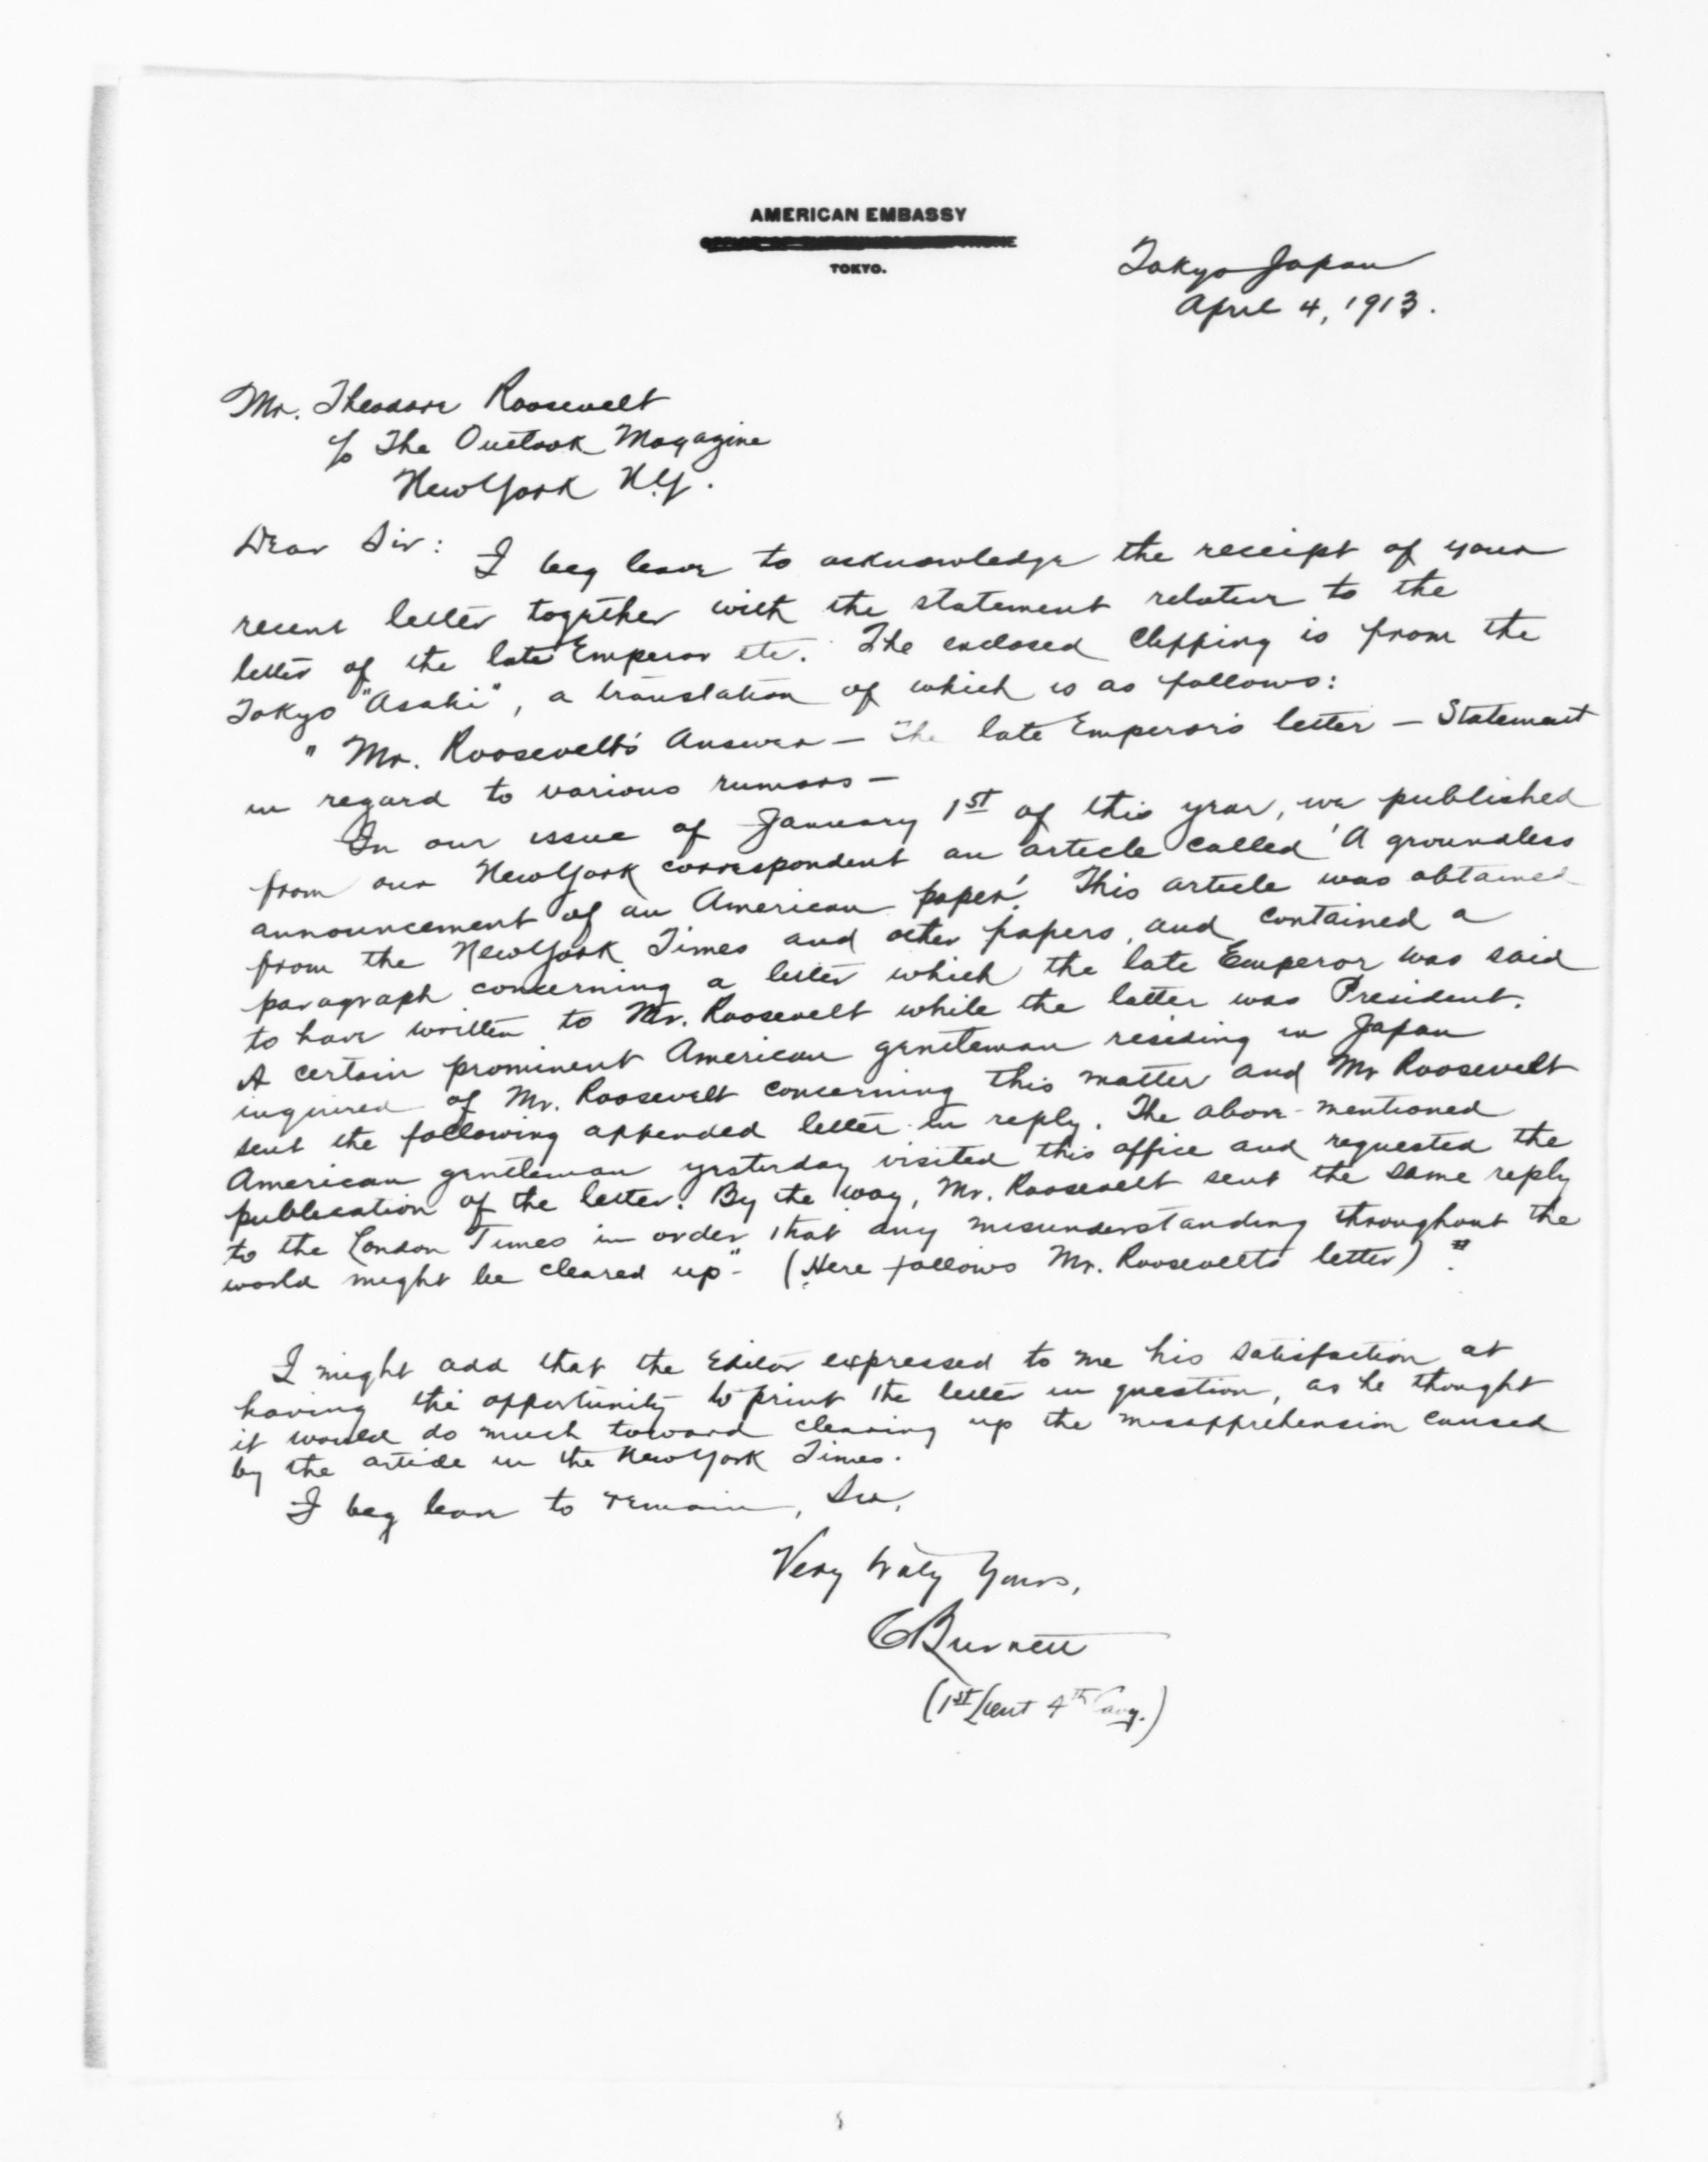 AMERICAN EMBASSY
TOKYO.
Tokyo Japan
April 4, 1913.
Mr. Theodore Roosevelt
c/o The Outlook Magazine
New York N.Y.
Dear Sir:
I beg leave to acknowledge the receipt of your
recent letter together with the statement relative to the
letter of the late Emperor etc. The enclosed clipping is from the
Tokyo "Asahi", a translation of which is as follows:
" Mr. Roosevelt's Answer — The late Emperor's letter — Statement
in regard to various rumors —
In our issue of January 1st of this year, we published
from our New York correspondent an article called 'A groundless
announcement of an American paper'. This article was obtained
from the New York Times and other papers, and contained a
paragraph concerning a letter which the late Emperor was said
to have written to Mr. Roosevelt while the latter was President.
A certain prominent American gentleman residing in Japan
inquired of Mr. Roosevelt concerning this matter and Mr Roosevelt
sent the following appended letter in reply. The above-mentioned
American gentleman yesterday visited this office and requested the
publication of the letter. By the way, Mr. Roosevelt sent the same reply
to the London Times in order that any misunderstanding throughout the
world might be cleared up" - (Here follows Mr. Roosevelt's letter) ."
I might add that the Editor expressed to me his satisfaction at
having the opportunity to print the letter in question, as he thought
it would do much toward clearing up the misapprehension caused
by the article in the New York Times.
I beg leave to remain, Sir,
Very truly yours,
C Burnett
(1st Lieut 4th Cavy.)